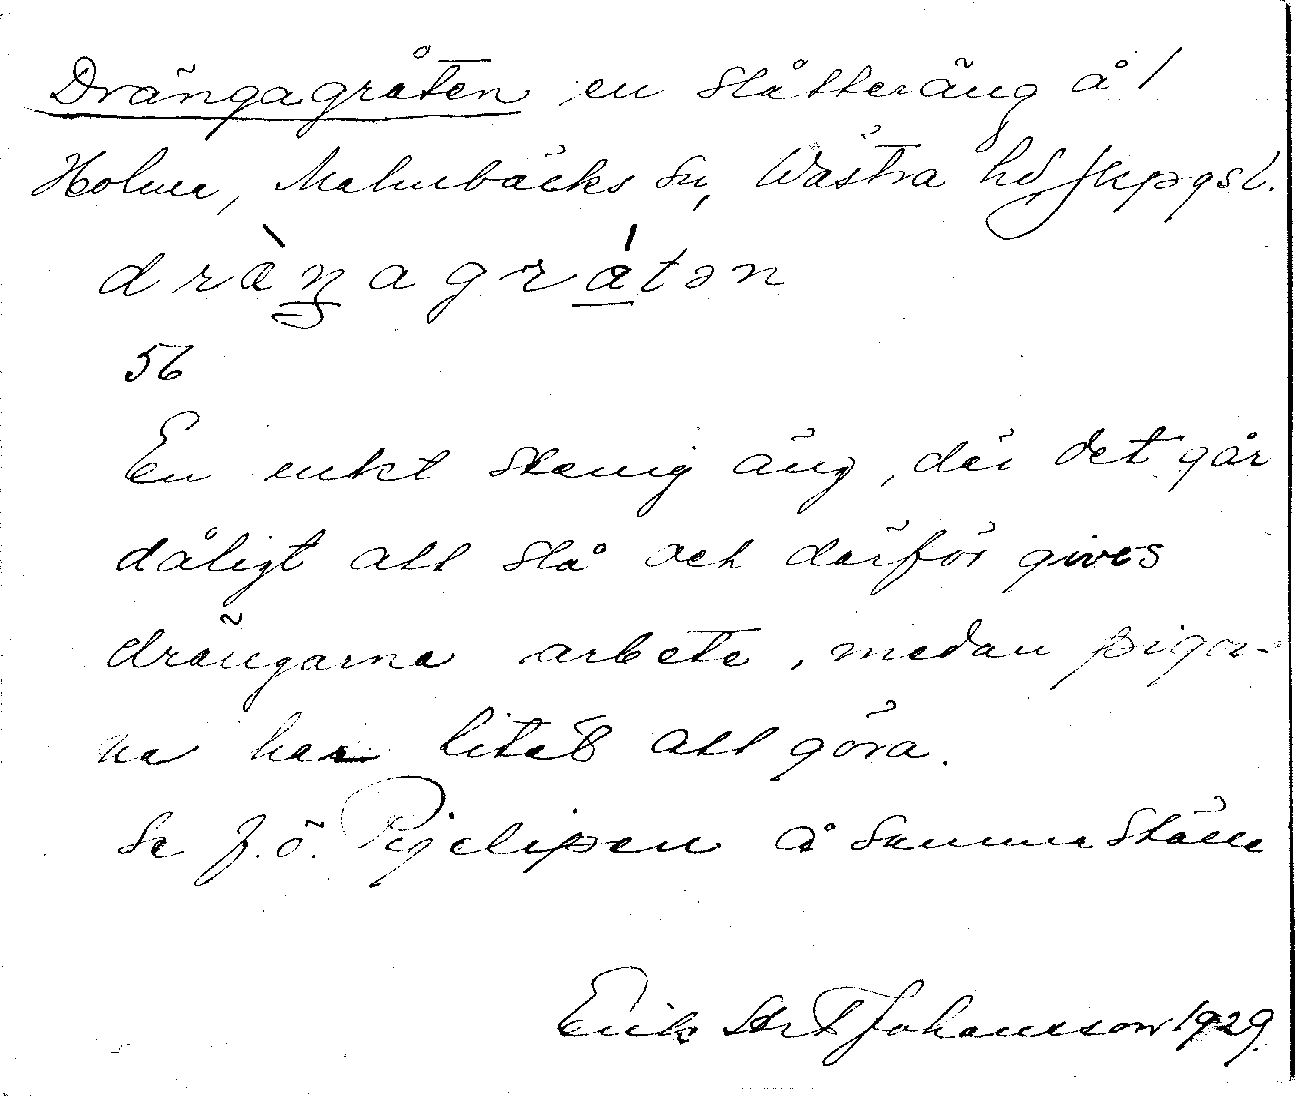 Drängagråten en slåtteräng å /
Holma, Malmbäcks sn, Västra hd Jkpgs l.
dräŋagråtən
56
En enkt stenig äng, där det går
dåligt att slå och därför gives
drängarna arbete, medan pigor-
na har litet att göra.
Se f.ö. Pigelipen å samma ställe
Erik Johansson 1929.